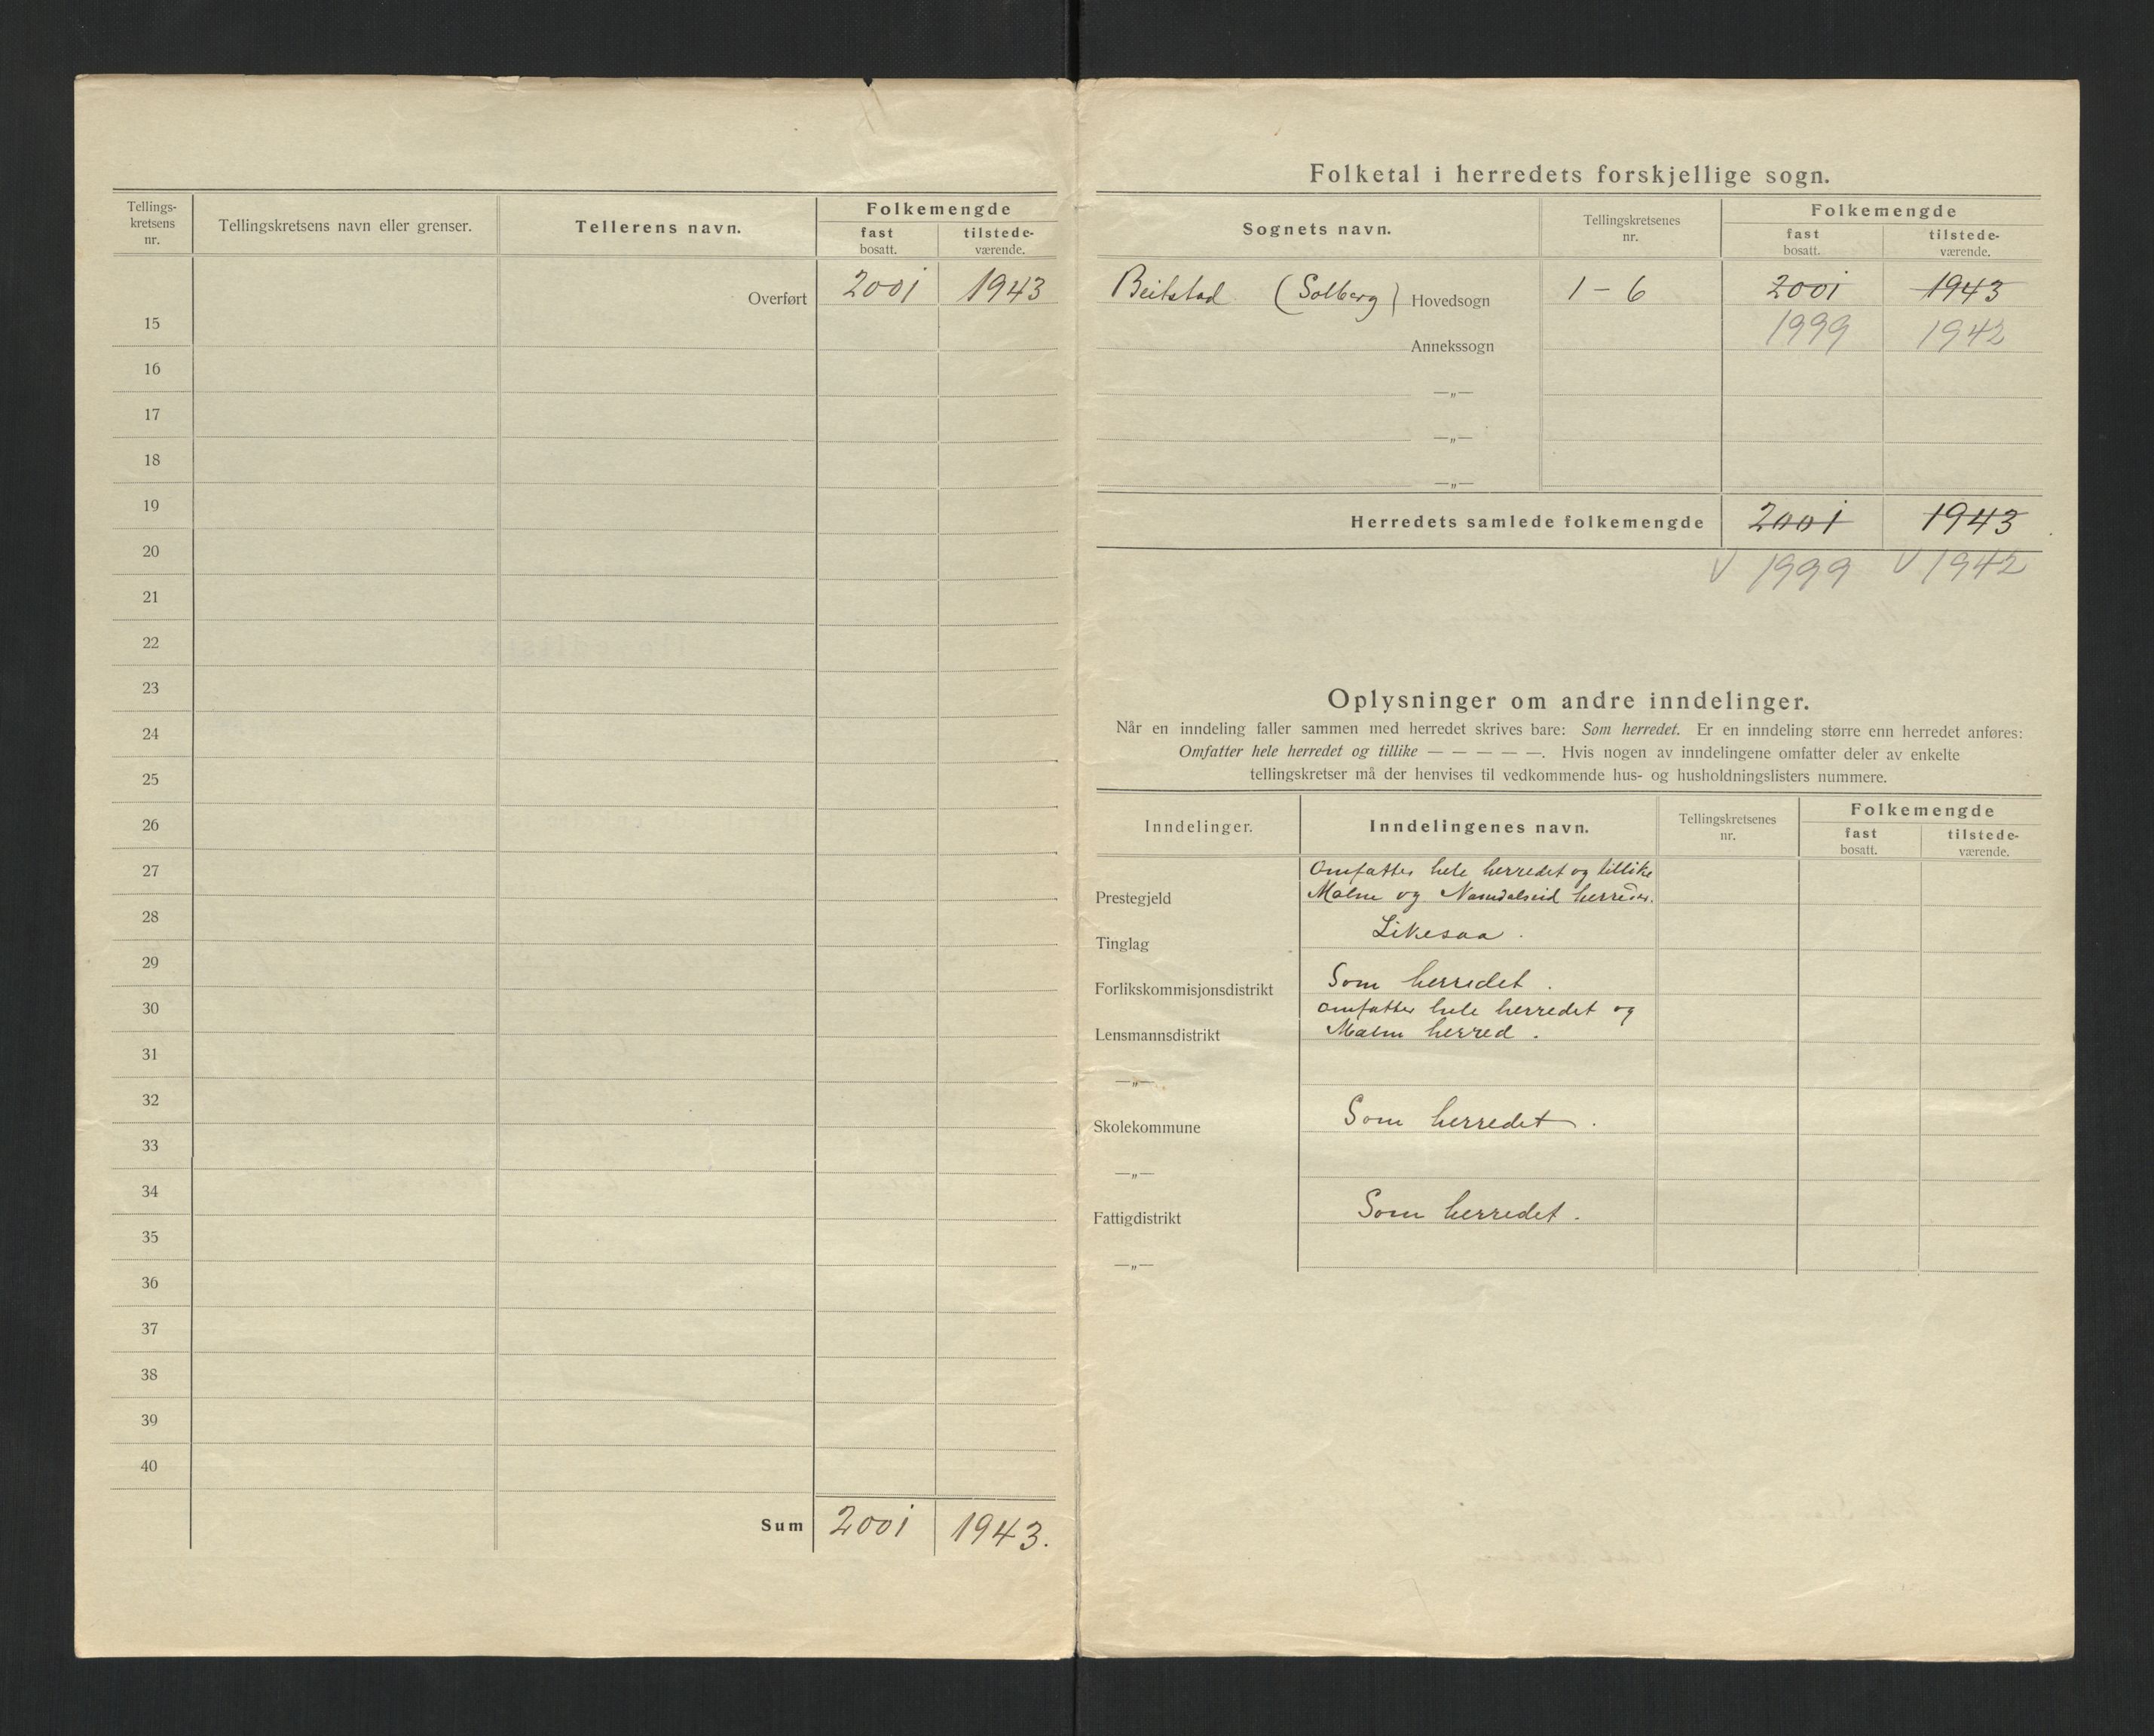 Tellings-
kretsens
nr.
Tellingskretsens navn eller grenser.
Tellerens navn.
Folkemengde
fast
bosatt.
tilstede-
værende.
Overført 2001 1943
15
16
17
18
19
20
21
22
23
24
25
26
27
28
29
30
31
32
33
34
35
36
37
38
39
40
Sum 2001 1943.
Folketal i herredets forskjellige sogn.
Sognets navn.
Tellingskretsenes
nr.
Folkemengde
fast
bosatt.
tilstede-
værende.
Beitstad (Solberg) Hovedsogn 1 - 6 2001 1943
1999 1942
Annekssogn
—„—
—„—
—„—
Herredets samlede folkemengde 2001 1943
V 1999 V 1942
Oplysninger om andre inndelinger.
Når en inndeling faller sammen med herredet skrives bare: Som herredet. Er en inndeling større enn herredet anføres:
Omfatter hele herredet og tillike — — — — —. Hvis nogen av inndelingene omfatter deler av enkelte
tellingskretser må der henvises til vedkommende hus- og husholdningslisters nummere.
Inndelinger.
Inndelingenes navn.
Tellingskretsenes
nr.
Folkemengde
fast
bosatt.
tilstede-
værende.
Omfatter hele herredet og tillike
Prestegjeld Malm og Namdalseid herreder.
Tinglag Likesaa.
Forlikskommisjonsdistrikt Som herredet.
Omfatter hele herredet og
Lensmannsdistrikt Malm herred.
—„—
Skolekommune Som herredet.
—„—
Fattigdistrikt Som herredet.
—„—